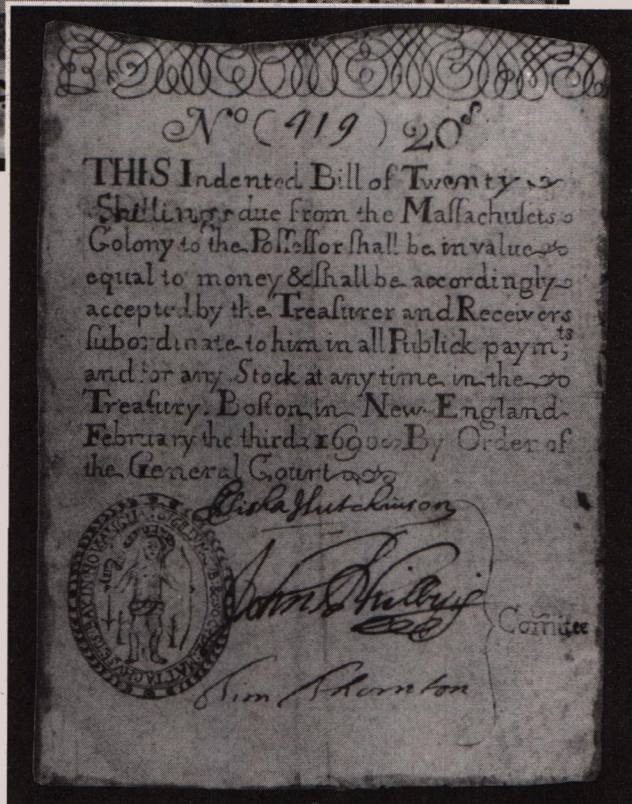 No (919) 20s
THIS Indented Bill of Twenty
Shillings due from the Maſſachuſets
Colony to the Poſſeſſor ſhall be in value
equal to money & ſhall be accordingly
accepted by the Treaſurer and Receivers
ſubordinate to him in all Publick paymts,
and for any Stock at any time in the
Treaſury. Boſton in New-England
February the third 1690. By Order of
the General Court
Elisha Hutchinson
John Phillips
Comitee
Tim Thornton